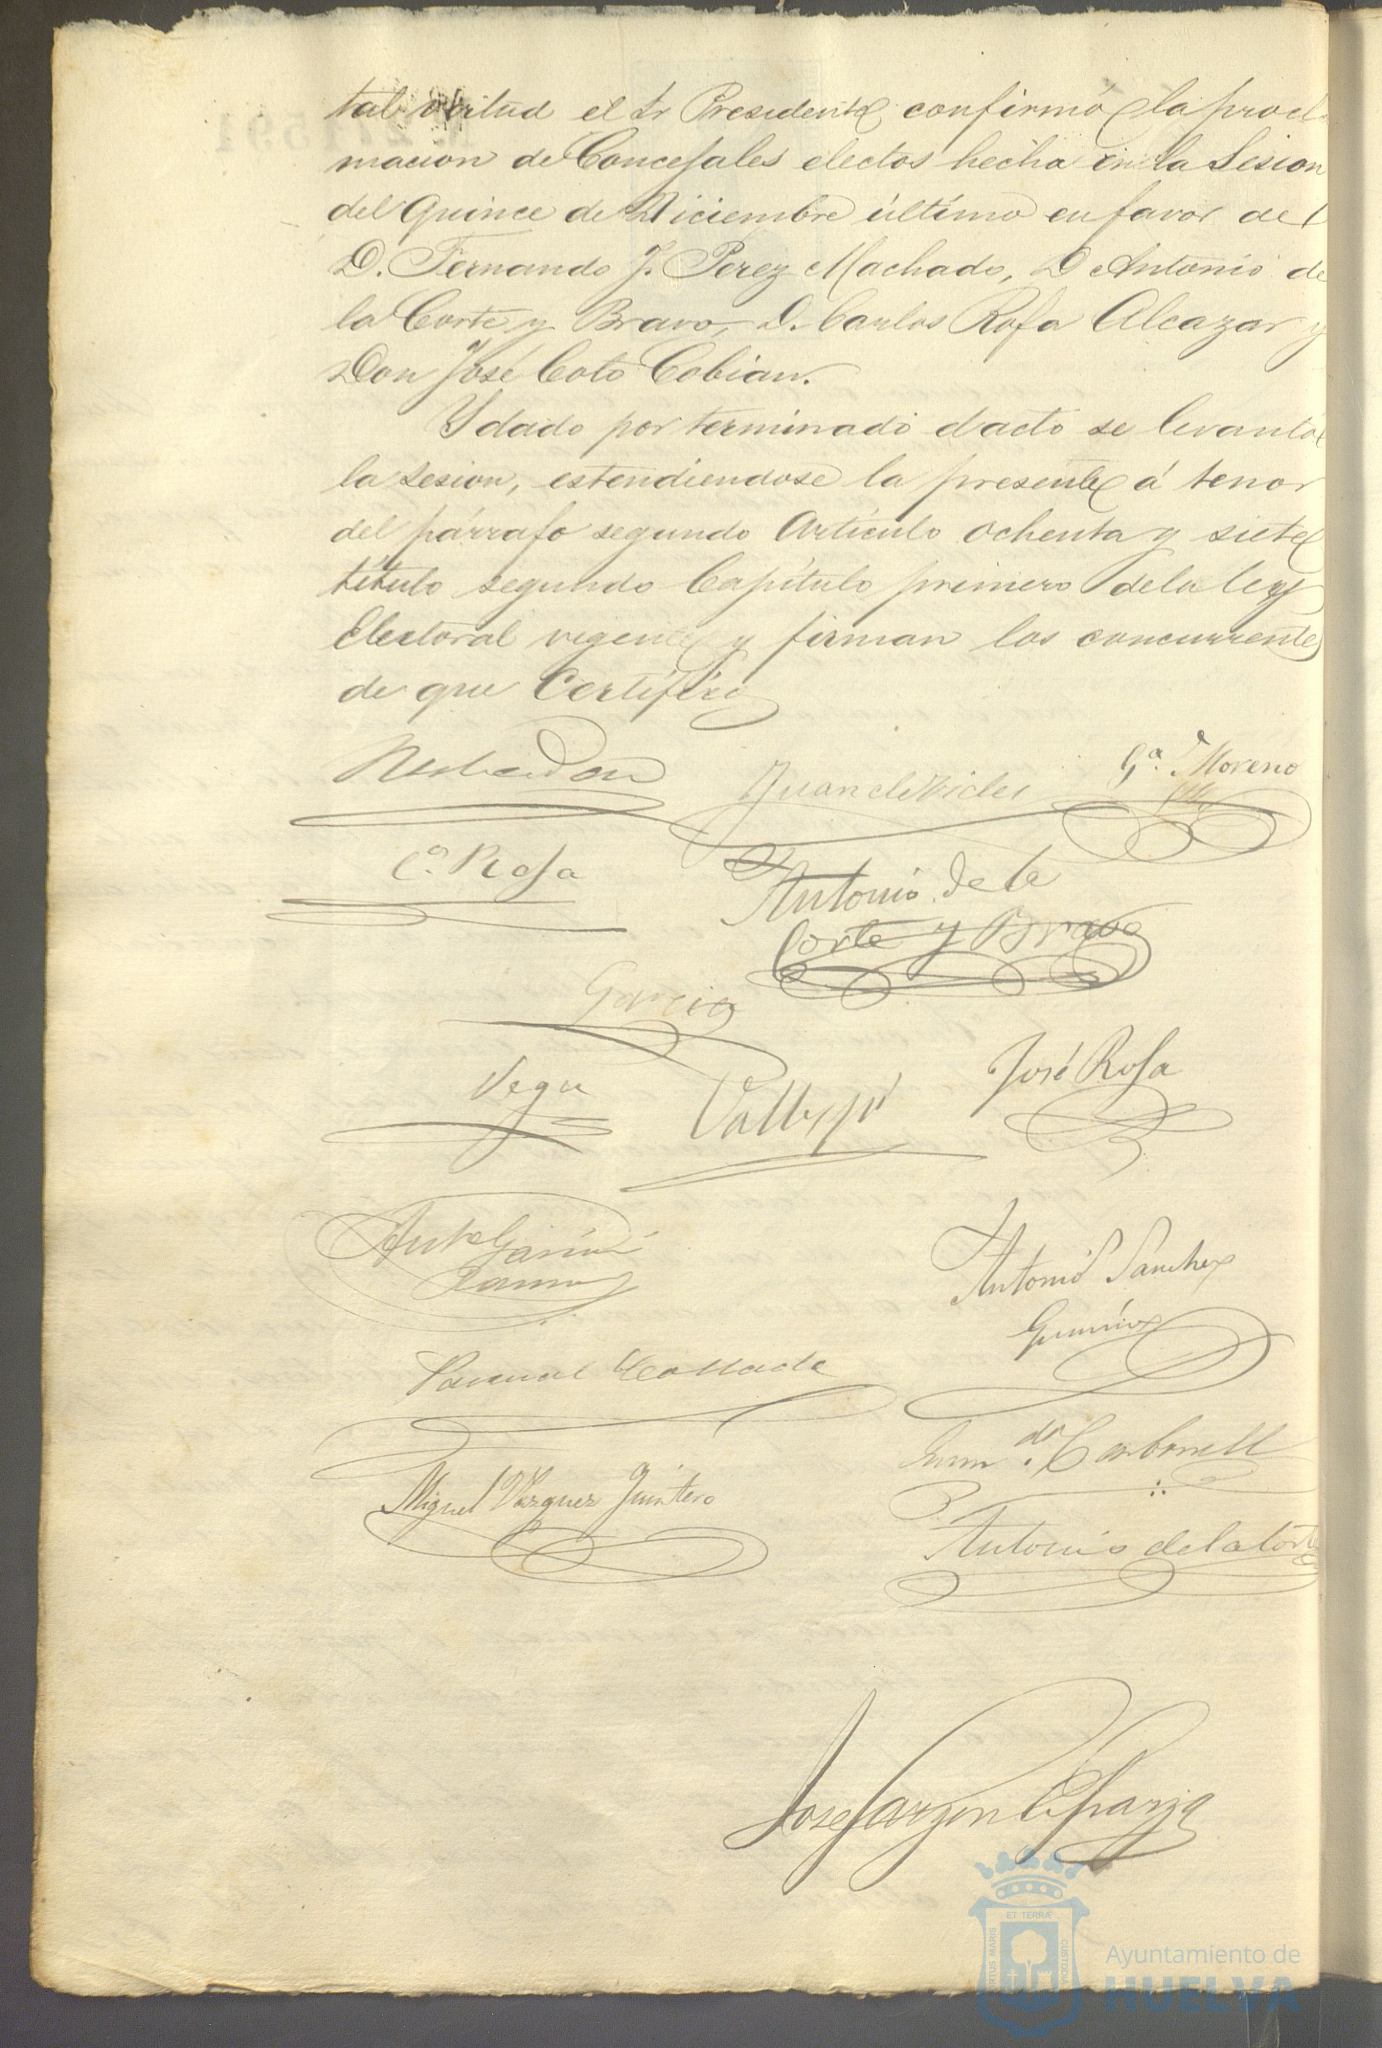 tal virtud el Sr Presidente confirmó la procla
macion de Concejales electos hecha en la Sesion
del Quince de Diciembre último en favor de
D. Fernando J. Perez Machado, D Antonio de
la Corte y Bravo, D. Carlos Rofa Alcazar y
Don José Coto Cobian.
Y dado por terminado el acto se levantó
la sesion, estendiendose la presente á tenor
del párrafo segundo Artículo ochenta y siete
título segundo Capítulo primero de la ley
Electoral vigente y firman los concurrentes
de que Certifico
Juan de Gª Moreno
Cº. Rofa
Antonio de la
Corte y Bravo
Garcia
Vega
José Rofa
Antº Garcia
Ramos
Antonio Sanchez
Pascual Collada
Carbonell
Miguel Vazquez Quintero
Antonio de la Corte
José Garzon Esparza
ET TERRÆ
CUSTODIA
Ayuntamiento de
HUELVA